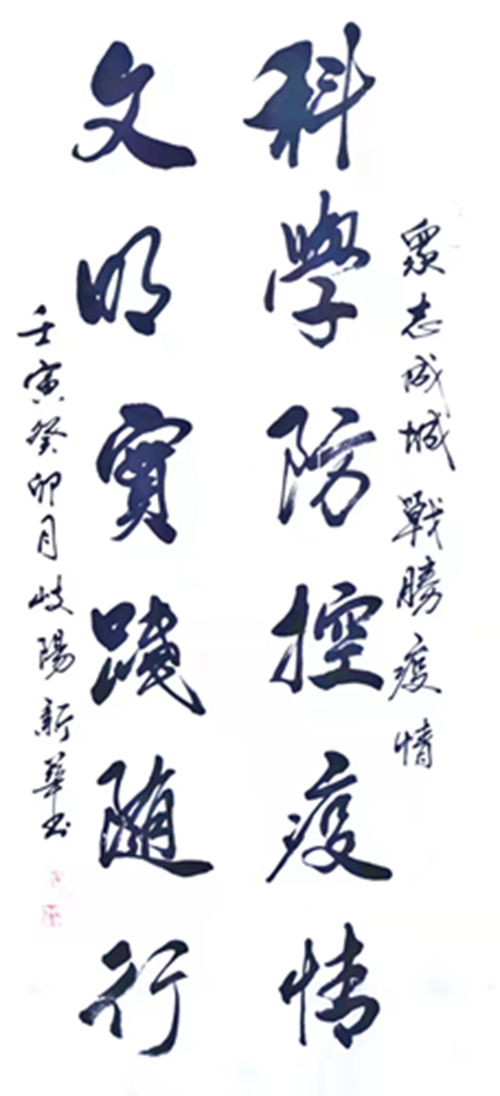 眾志成城 戰勝疫情
科學防控疫情
文明實踐随行
壬寅癸卯月岐陽新華书